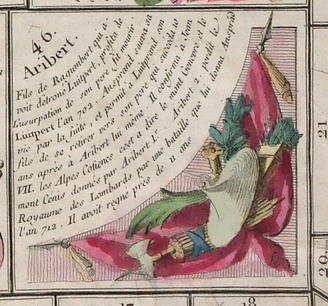 46.
Aribert.
Fils de Ragumbert qui a-
voit détroné Luitpert, profita de
l'usurpation de son pere, fit mourir
Luitpert l'an 702. Ansprand sauva sa
vie par la fuite, et permit à Luitprand son
fils de se retirer vers son pere qui succeda 10
ans après à Aribert lui même. Il confirma à Jean
VII. les Alpes Cotienes c'est à dire le mont Genevre et le
mont Cenis donnés par Aribert Ir. Aribert 2 perdit le
Royaume des Lombards par une bataille que lui donna Ansprand
l'an 712. Il avoit régné près de 11 ans
17
18
21
20